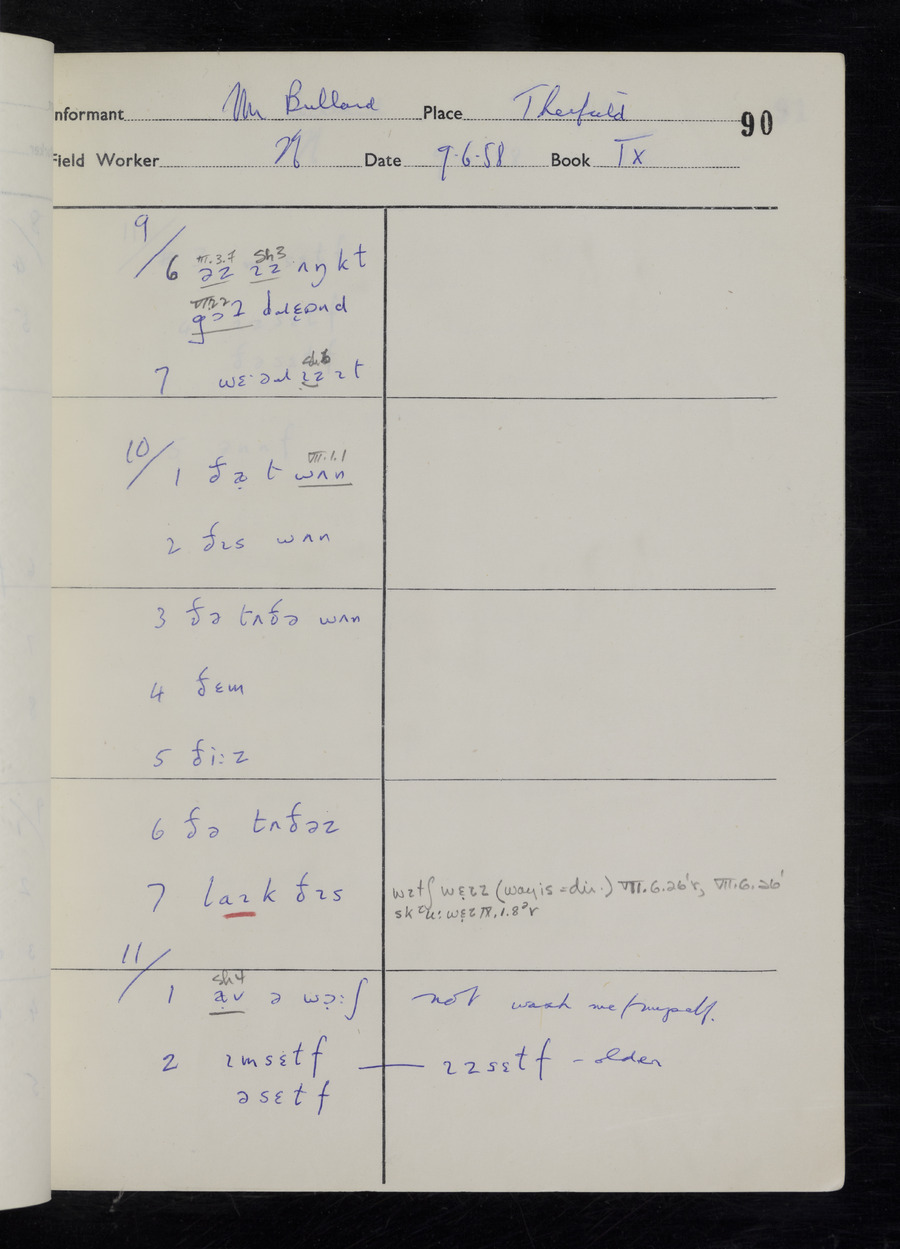 nformant Mr Bullard Place Therfield
90
Field Worker Date 9.6.58 Book IX
9/
VII.3.7 Sh3
6 əz ɪz ʌŋkt
VII.2.2
daɛənd
sh3
7 wɛ·əɹ ɪz ɪt
10/
VII.1.1
1 ðạt wʌn
2 ðɪs wʌn
3 ðə tʌðə wʌn
4 ðɛm
5 ði:z
6 ðə tʌðəz
7 laɪk ðɪs
wɪtʃ wɛ̣ɪz (way is = dir.) VII.6.26'r, VII.6.26'
11/
sh4
1 ạv ə wɔ̣:ʃ not wash me/myself.
2 ɪmsɛtf — ɪzsɛtf – older
əsɛtf